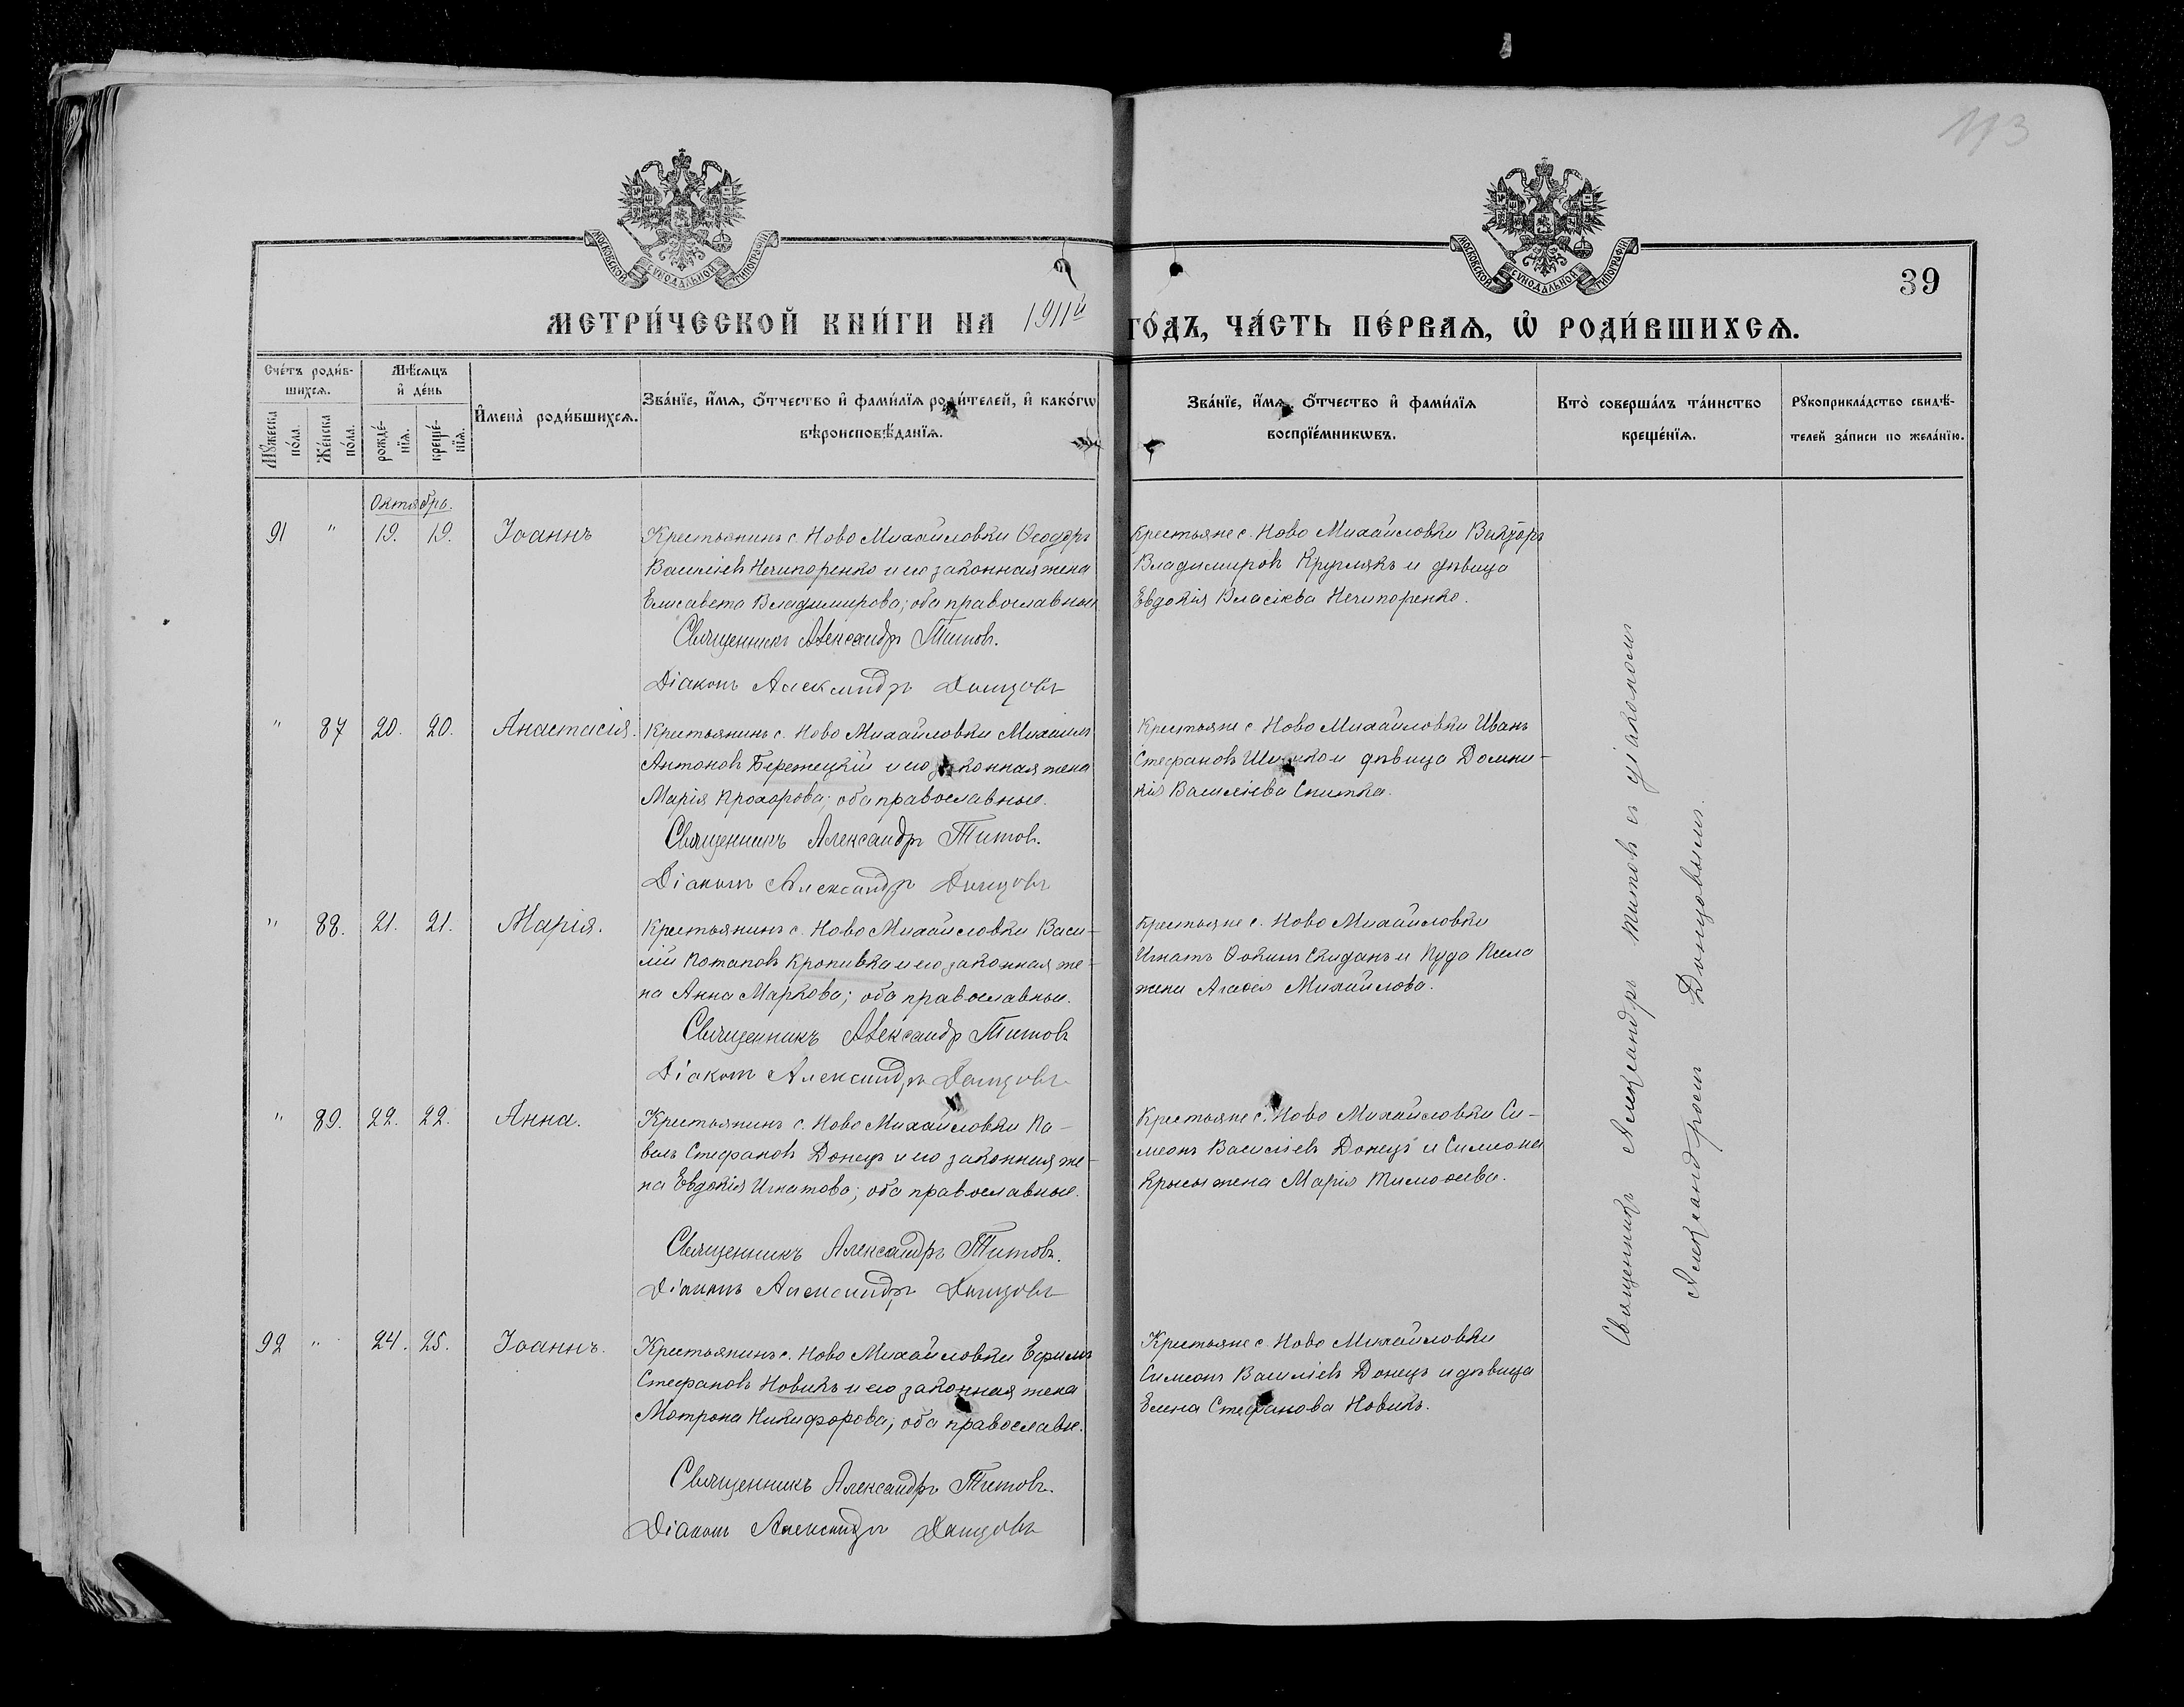 113
МОСКОВСКОЙ СѴНОДАЛЬНОЙ ТИПОГРАФІИ
МОСКОВСКОЙ СѴНОДАЛЬНОЙ ТИПОГРАФІИ
39
МЕТРИ́ЧЕСКОЙ КНИ́ГИ НА 1911й ГО́ДЪ, ЧА́СТЬ ПЕ́РВАѦ, Ѡ҆ РОДИ́ВШИХСѦ.
Сче́тъ роди́в-
шихсѧ.
Мѣ́сѧцъ
и҆ де́нь
Мꙋ́жеска по́ла.
Же́нска по́ла.
рожде́-
нїѧ.
креще́-
нїѧ.
И҆мена̀ роди́вшихсѧ.
Зва́нїе, и҆́мѧ, ѻ҆́тчество и҆ фами́лїѧ роди́телей, и҆ како́гѡ
вѣроисповѣ́данїѧ.
Зва́нїе, и҆́мѧ, ѻ҆́тчество и҆ фами́лїѧ
воспрїе́мникѡвъ.
Кто̀ соверша́лъ та́инство
креще́нїѧ.
Рꙋкоприкла́дство свидѣ́-
телей за́писи по жела́нїю.
Октябрь.
91 " 19. 19. Іоаннъ
Крестьянинъ с. Ново Михайловки Ѳеодоръ
Василіевъ Нечипоренко и его законная жена
Елисавета Владимирова; оба православные
Священникъ Александръ Титовъ.
Діаконъ Александръ Донцовъ
Крестьяне с. Ново Михайловки Викторъ
Владимировъ Круглякъ и дѣвица
Евдокія Власіева Нечипоренко.
" 87 20. 20. Анастасія.
Крестьянинъ с. Ново Михайловки Михаилъ
Антоновъ Бережецкій и его законная жена
Марія Прохорова; оба православные.
Священникъ Александръ Титовъ.
Діаконъ Александръ Донцовъ
Крестьяне с. Ново Михайловки Иванъ
Стефановъ и дѣвица Домни-
кія Василіева
" 88. 21. 21. Марія.
Крестьянинъ с. Ново Михайловки Васи-
лій Потаповъ Кропивка и его законная же-
на Анна Маркова; оба православные.
Священникъ Александръ Титовъ
Діаконъ Александръ Донцовъ
Крестьяне с. Ново Михайловки
Игнатъ Скиданъ и
жена Агаѳія Михайлова.
" 89. 22. 22. Анна.
Крестьянинъ с. Ново Михайловки Па-
велъ Стефановъ Донецъ и его законная же-
на Евдокія Игнатова; оба православные.
Священникъ Александръ Титовъ.
Діаконъ Александръ Донцовъ
Крестьяне с. Ново Михайловки Си-
меонъ Василіевъ Донецъ и Симеона
Крысы жена Марія Тимоѳеева.
92 " 24. 25. Іоаннъ.
Крестьянинъ с. Ново Михайловки Ефимъ
Стефановъ Новикъ и его законная жена
Матрона Никифорова; оба православн.
Священникъ Александръ Титовъ.
Діаконъ Александръ Донцовъ
Крестьяне с. Ново Михайловки
Симеонъ Василіевъ Донецъ и дѣвица
Елена Стефанова Новикъ.
Священникъ Александръ Титовъ съ діакономъ
Александромъ Донцовымъ.